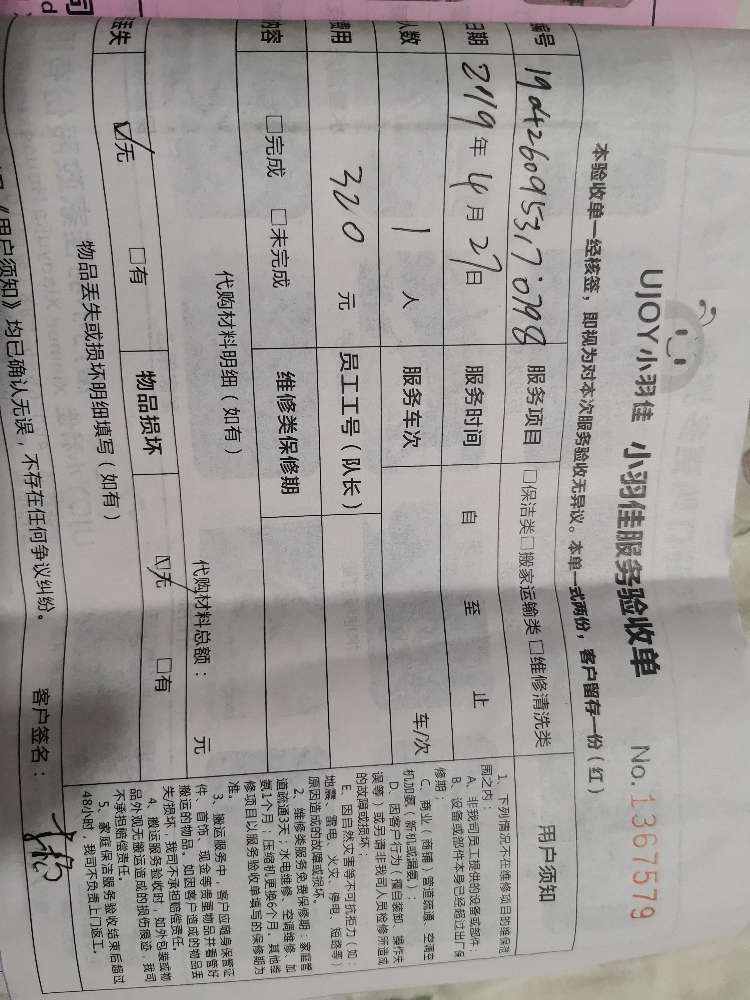 UJOY小羽佳 小羽佳服务验收单 No.1367579
本验收单一经核签，即视为对本次服务验收无异议。本单一式两份，客户留存一份（红）
编号 服务项目 □保洁类□搬家运输类□维修清洗类
日期 2019年4月27日 服务时间 自 至 止
人数 1人 服务车次 车/次
费用 320元 员工工号（队长）
内容 □完成 □未完成 维修类保修期
代购材料明细（如有） 代购材料总额： 元
丢失 ☑无 □有 物品损坏 ☑无 □有
物品丢失或损坏明细填写（如有）
《用户须知》均已确认无误，不存在任何争议纠纷。 客户签名：
用户须知
1、下列情况不在维修项目的维保范
围之内：
A、非我司员工提供的设备或部件；
B、设备或部件本身已经超过出厂保
修期；
C、商业（商铺）管道疏通、空调至
机加氨（新机或漏氨）；
D、因客户行为（擅自装卸、操作失
误等）或另请非我司人员检修所造成
的故障或损坏；
E、因自然灾害等不可抗拒力（如：
地震、雷电、火灾、停电、短路等）
原因造成的故障或损坏。
2、维修类服务免费保修期：家庭管
道疏通3天；水电维修、空调维修、加
氨1个月；压缩机更换6个月。其他维
修项目以服务验收单填写的保修期为
准。
3、搬运服务中，客户应随身保管证
件、首饰、现金等贵重物品并看管好
搬运的物品。如因客户造成的物品丢
失/损坏，我司不承担赔偿责任。
4、搬运服务验收时，如外包装或物
品外观无搬运造成的损伤痕迹，我司
不承担赔偿责任。
5、家庭保洁服务验收结束后超过
48小时，我司不负责上门返工。